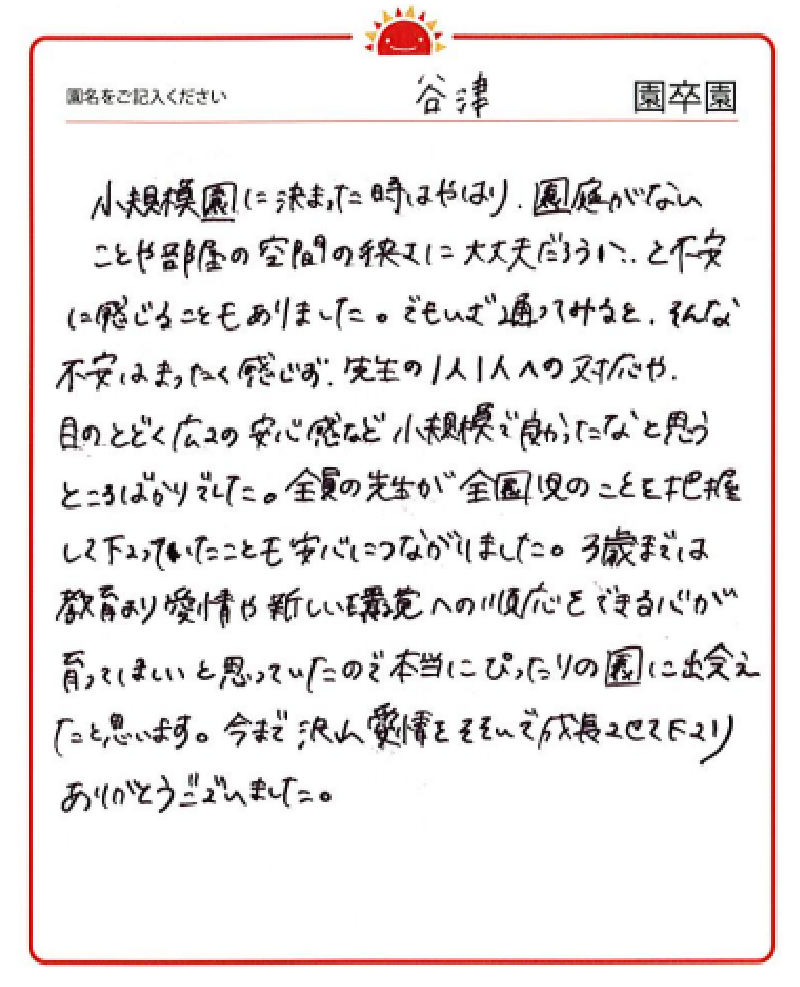 園名をご記入ください 谷津 園卒園
小規模園に決まった時はやはり、園庭がない
ことや部屋の空間の狭さに大丈夫だろうか、と不安
に感じることもありました。でもいざ通ってみると、そんな
不安はまったく感じず、先生の1人1人への対応や、
目のとどく広さの安心感など小規模で良かったなと思う
ところばかりでした。全員の先生が全園児のことを把握
して下さっていたことも安心につながりました。3歳までは
教育より愛情や新しい環境への順応をできる心が
育ってほしいと思っていたので本当にぴったりの園に出会え
たと思います。今まで沢山愛情をそそいで成長させて下さり
ありがとうございました。